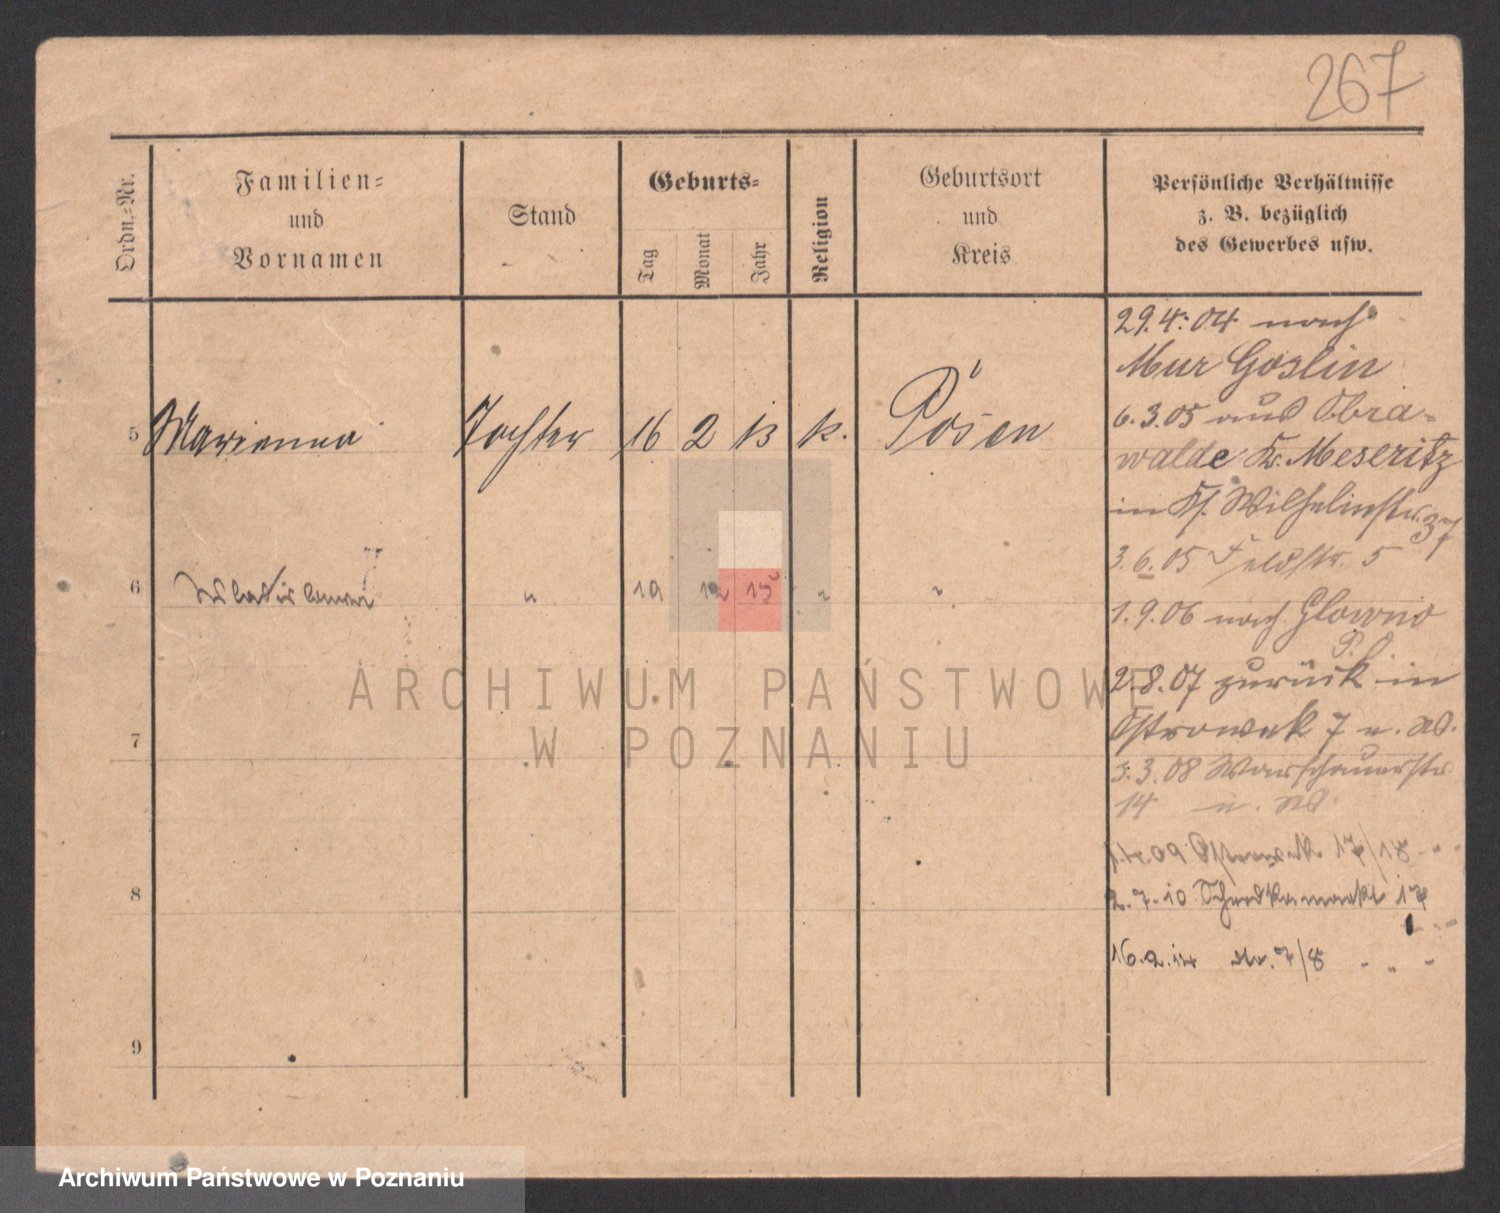 267
Ordn.-Nr.
Familien-
und
Vornamen
Stand
Geburts-
Tag
Monat
Jahr
Religion
Geburtsort
und
Kreis
Persönliche Verhältnisse
z. B. bezüglich
des Gewerbes usw.
5 Marianna Tochter 16 2 13 k. Posen
6 " 19 12 15 " "
7
8
9
29.4.04 nach
Mur Goslin
6.3.05 aus Obra-
walde Kr. Meseritz
in Wilhelmstr. 37
3.6.05 Feldstr. 5
1.9.06 nach Glowno
P. O.
2.8.07 zurück in
Ostrowek 7 u. W.
3.3.08 Warschauerstr
14 u. W.
09 Ostrowek 17/18 " "
2.7.10 Schrodkamarkt 17
16.2.14 Nr. 7/8 - " -
ARCHIWUM PAŃSTWOWE
W POZNANIU
Archiwum Państwowe w Poznaniu